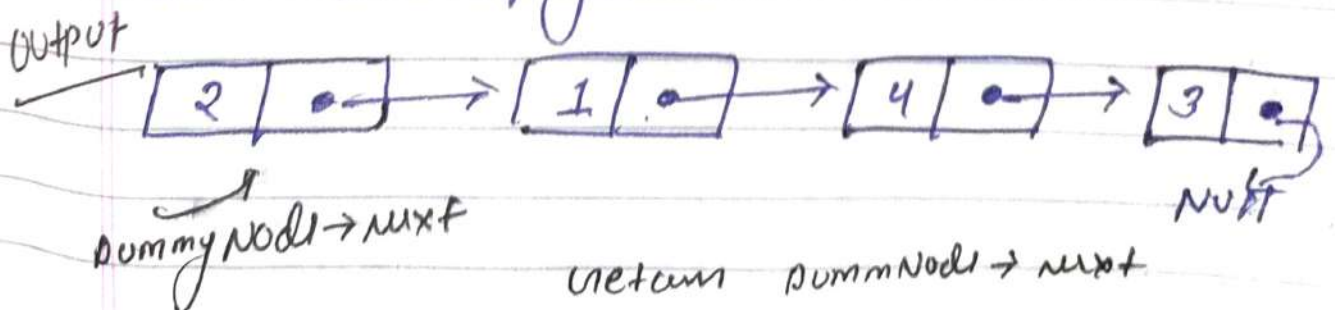 OUTPUT
2 1 4 3
NULL
DummyNode → next
return DummNode → next